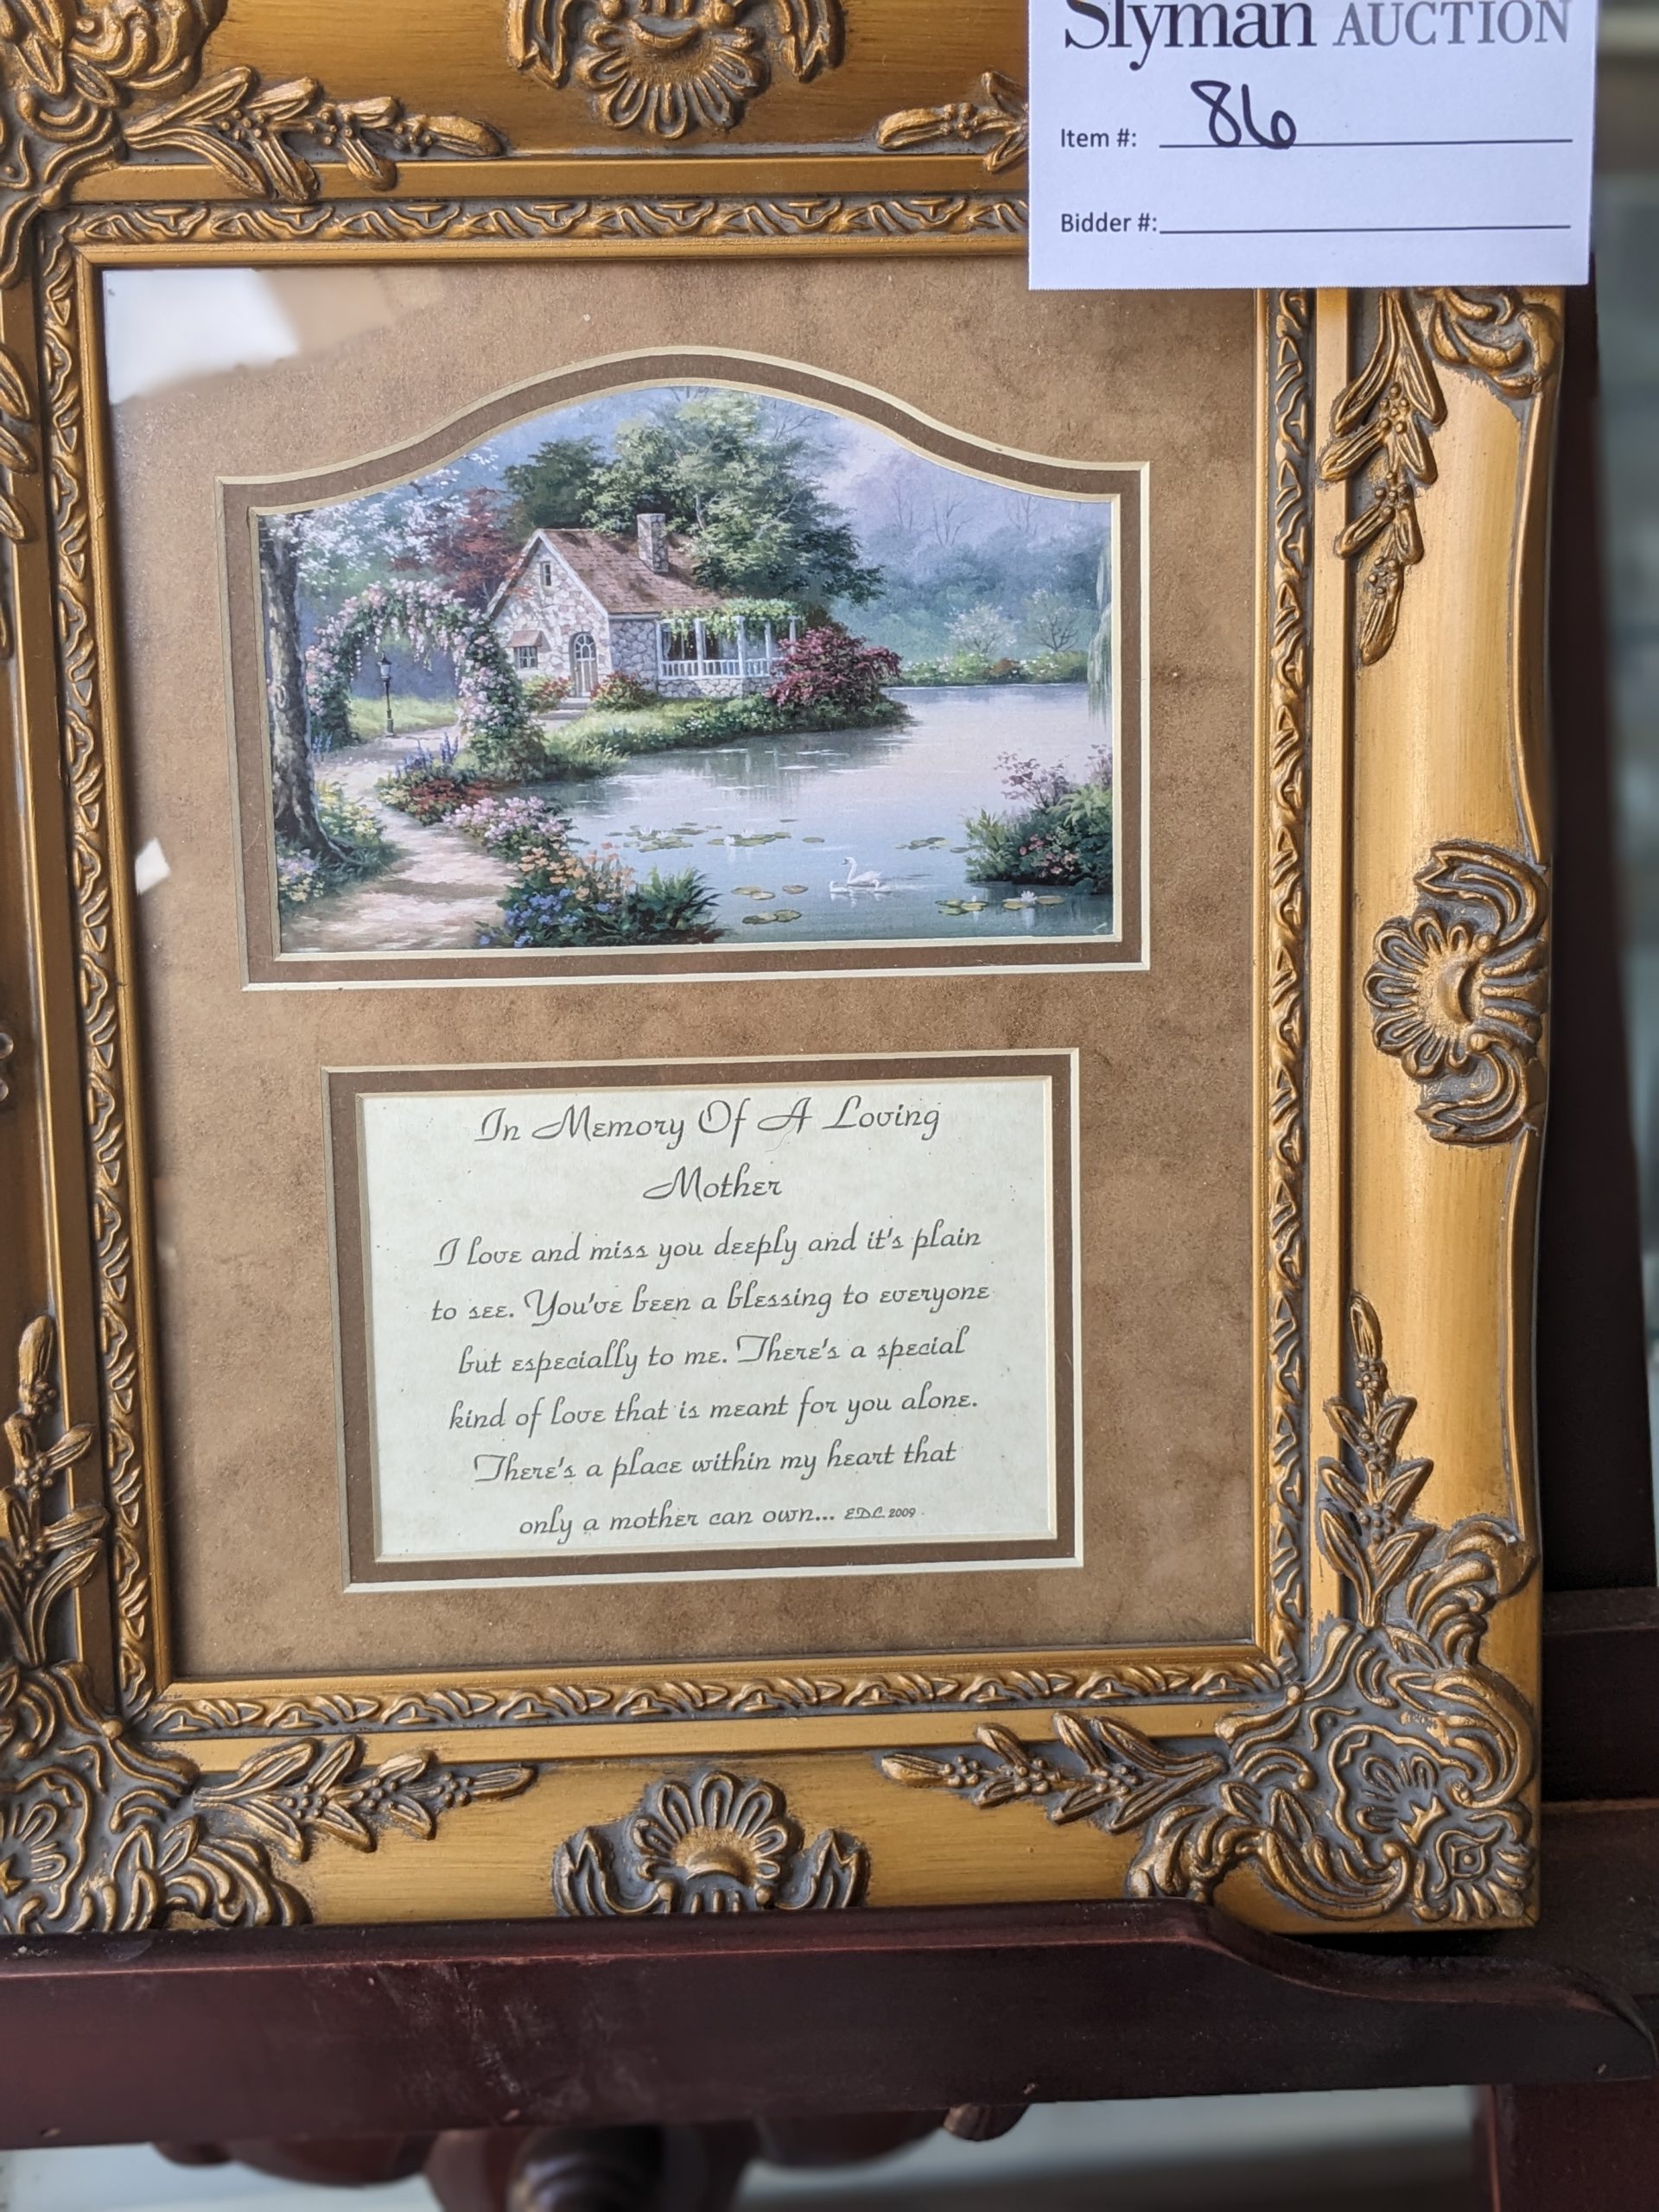 Slyman AUCTION
Item #: 86
Bidder #:
In Memory Of A Loving
Mother
I love and miss you deeply and it's plain
to see. You've been a blessing to everyone
but especially to me. There's a special
kind of love that is meant for you alone.
There's a place within my heart that
only a mother can own... E.D.C. 2009